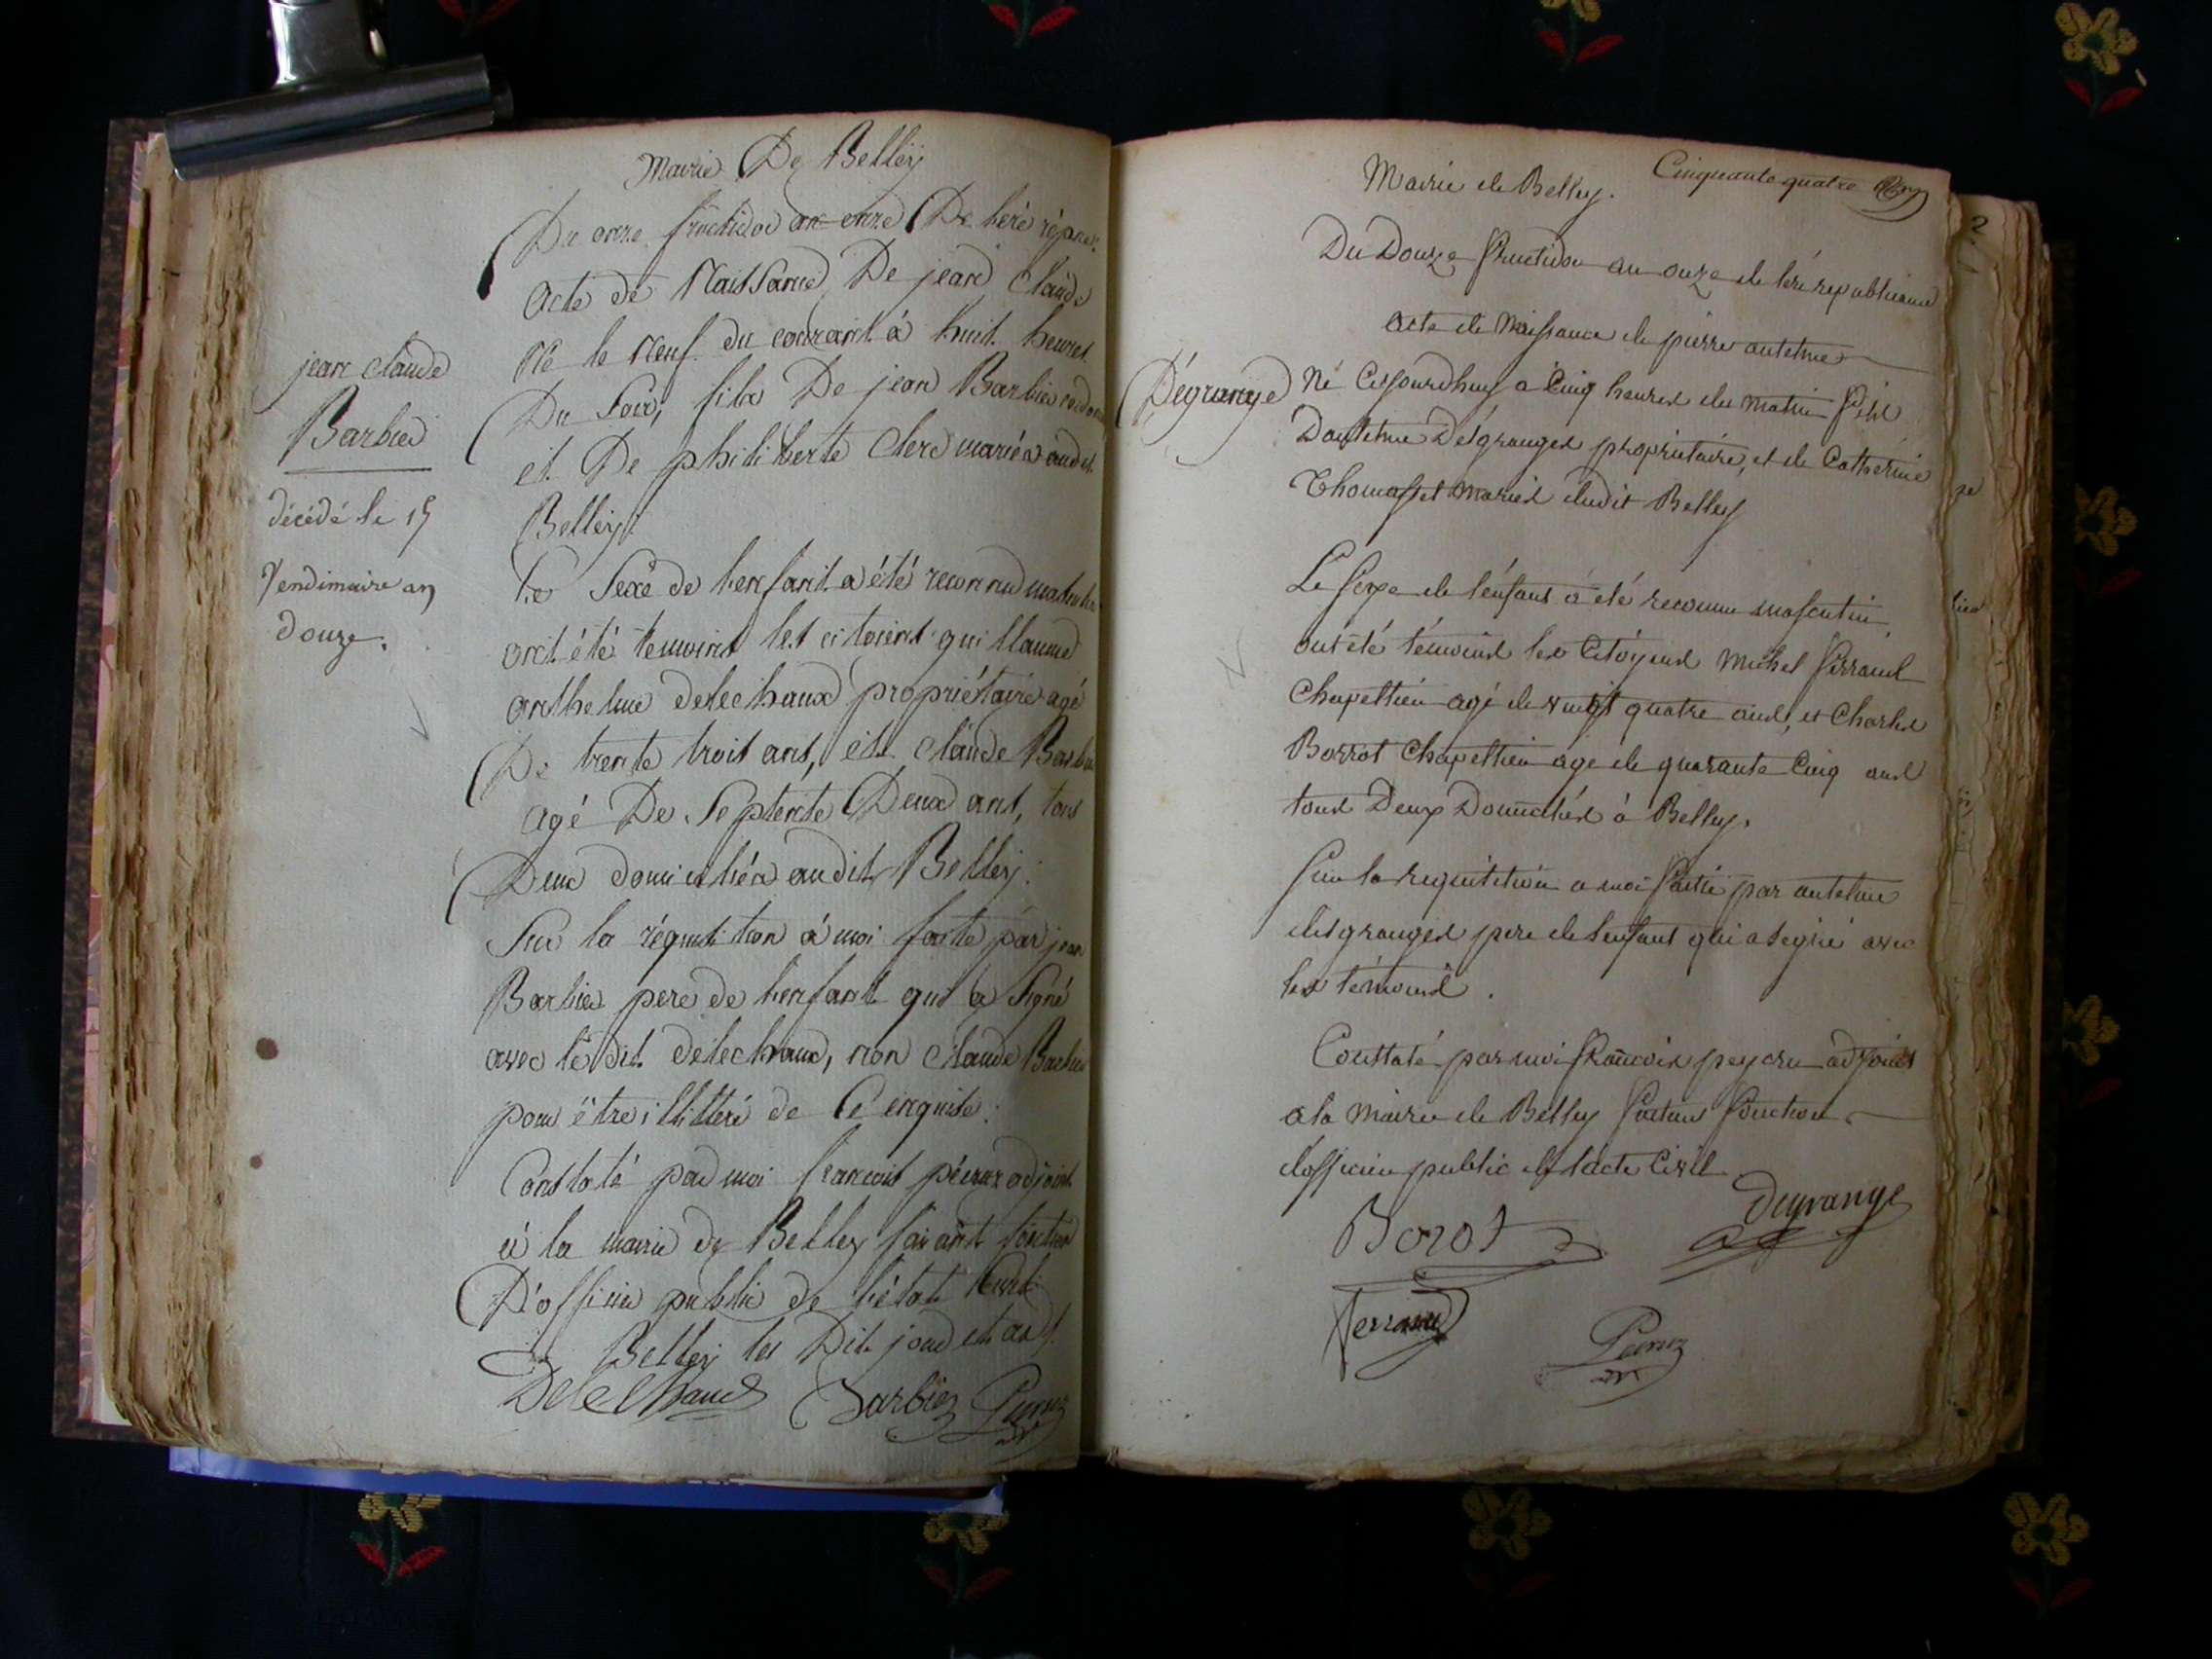 Mairie De Belleÿ
Du onze fructidor an onze De l'erè répne:
Acte de Naissance De jean Claude
Né le Neuf du courant à huit heures
Du Soir, fils De jean Barbier
et De philiberte Clerc mariés audit
Belleÿ:
Le Sexe de l'enfant a été reconnu
ont été temoins les citoiens guillaume
anthelme delechaux propriétaire agé
De trente trois ans, et Claude Barbier
agé De Septente Deux ans, tous
Deux domiciliés audit Belleÿ:
Sur la réquisition à moi faite par jean
Barbier pere de l'enfant qui a Signé
avec le dit delechaux, non Claude Barbier
pour être illitteré de Ce enquise:
Constaté par moi francois péicruz adjoint
à la mairie de Belley faisant fonction
D'officier public de l'état Civil
Belleÿ les Dit jour et an
Delechaux Barbier
jean claude
Barbier
décédé le 15
Vendimaire an
douze.
Cinquante quatre
Mairie de Belley.
Du Douze fructidor an onze de l'ére republicaine
acte de Naissance de pierre antelme
Dégrange
Né Cejourdhuy a Cinq heures du matin fils
D'antelme Désgranges propriétaire, et de Catherine
Thomasset mariés dudit Belley
Le Sexe de l'enfant a été reconnu masculin
ont été témoins les Citoyens Michel ferrand
Chapellier agé de vingt quatre ans, et Charles
Borrot Chapellier agé de quarante Cinq ans
tous Deux Domiciliés à Belley.
Sur la requisition a moi faitte par antelme
desgranges pere de l'enfant qui a signé avec
les témoins.
Constaté par moi françois peycru adjoint
a la Mairie de Belley faisant fonction
d'officier public de l'acte Civil
Borot
Degrange
ferrand